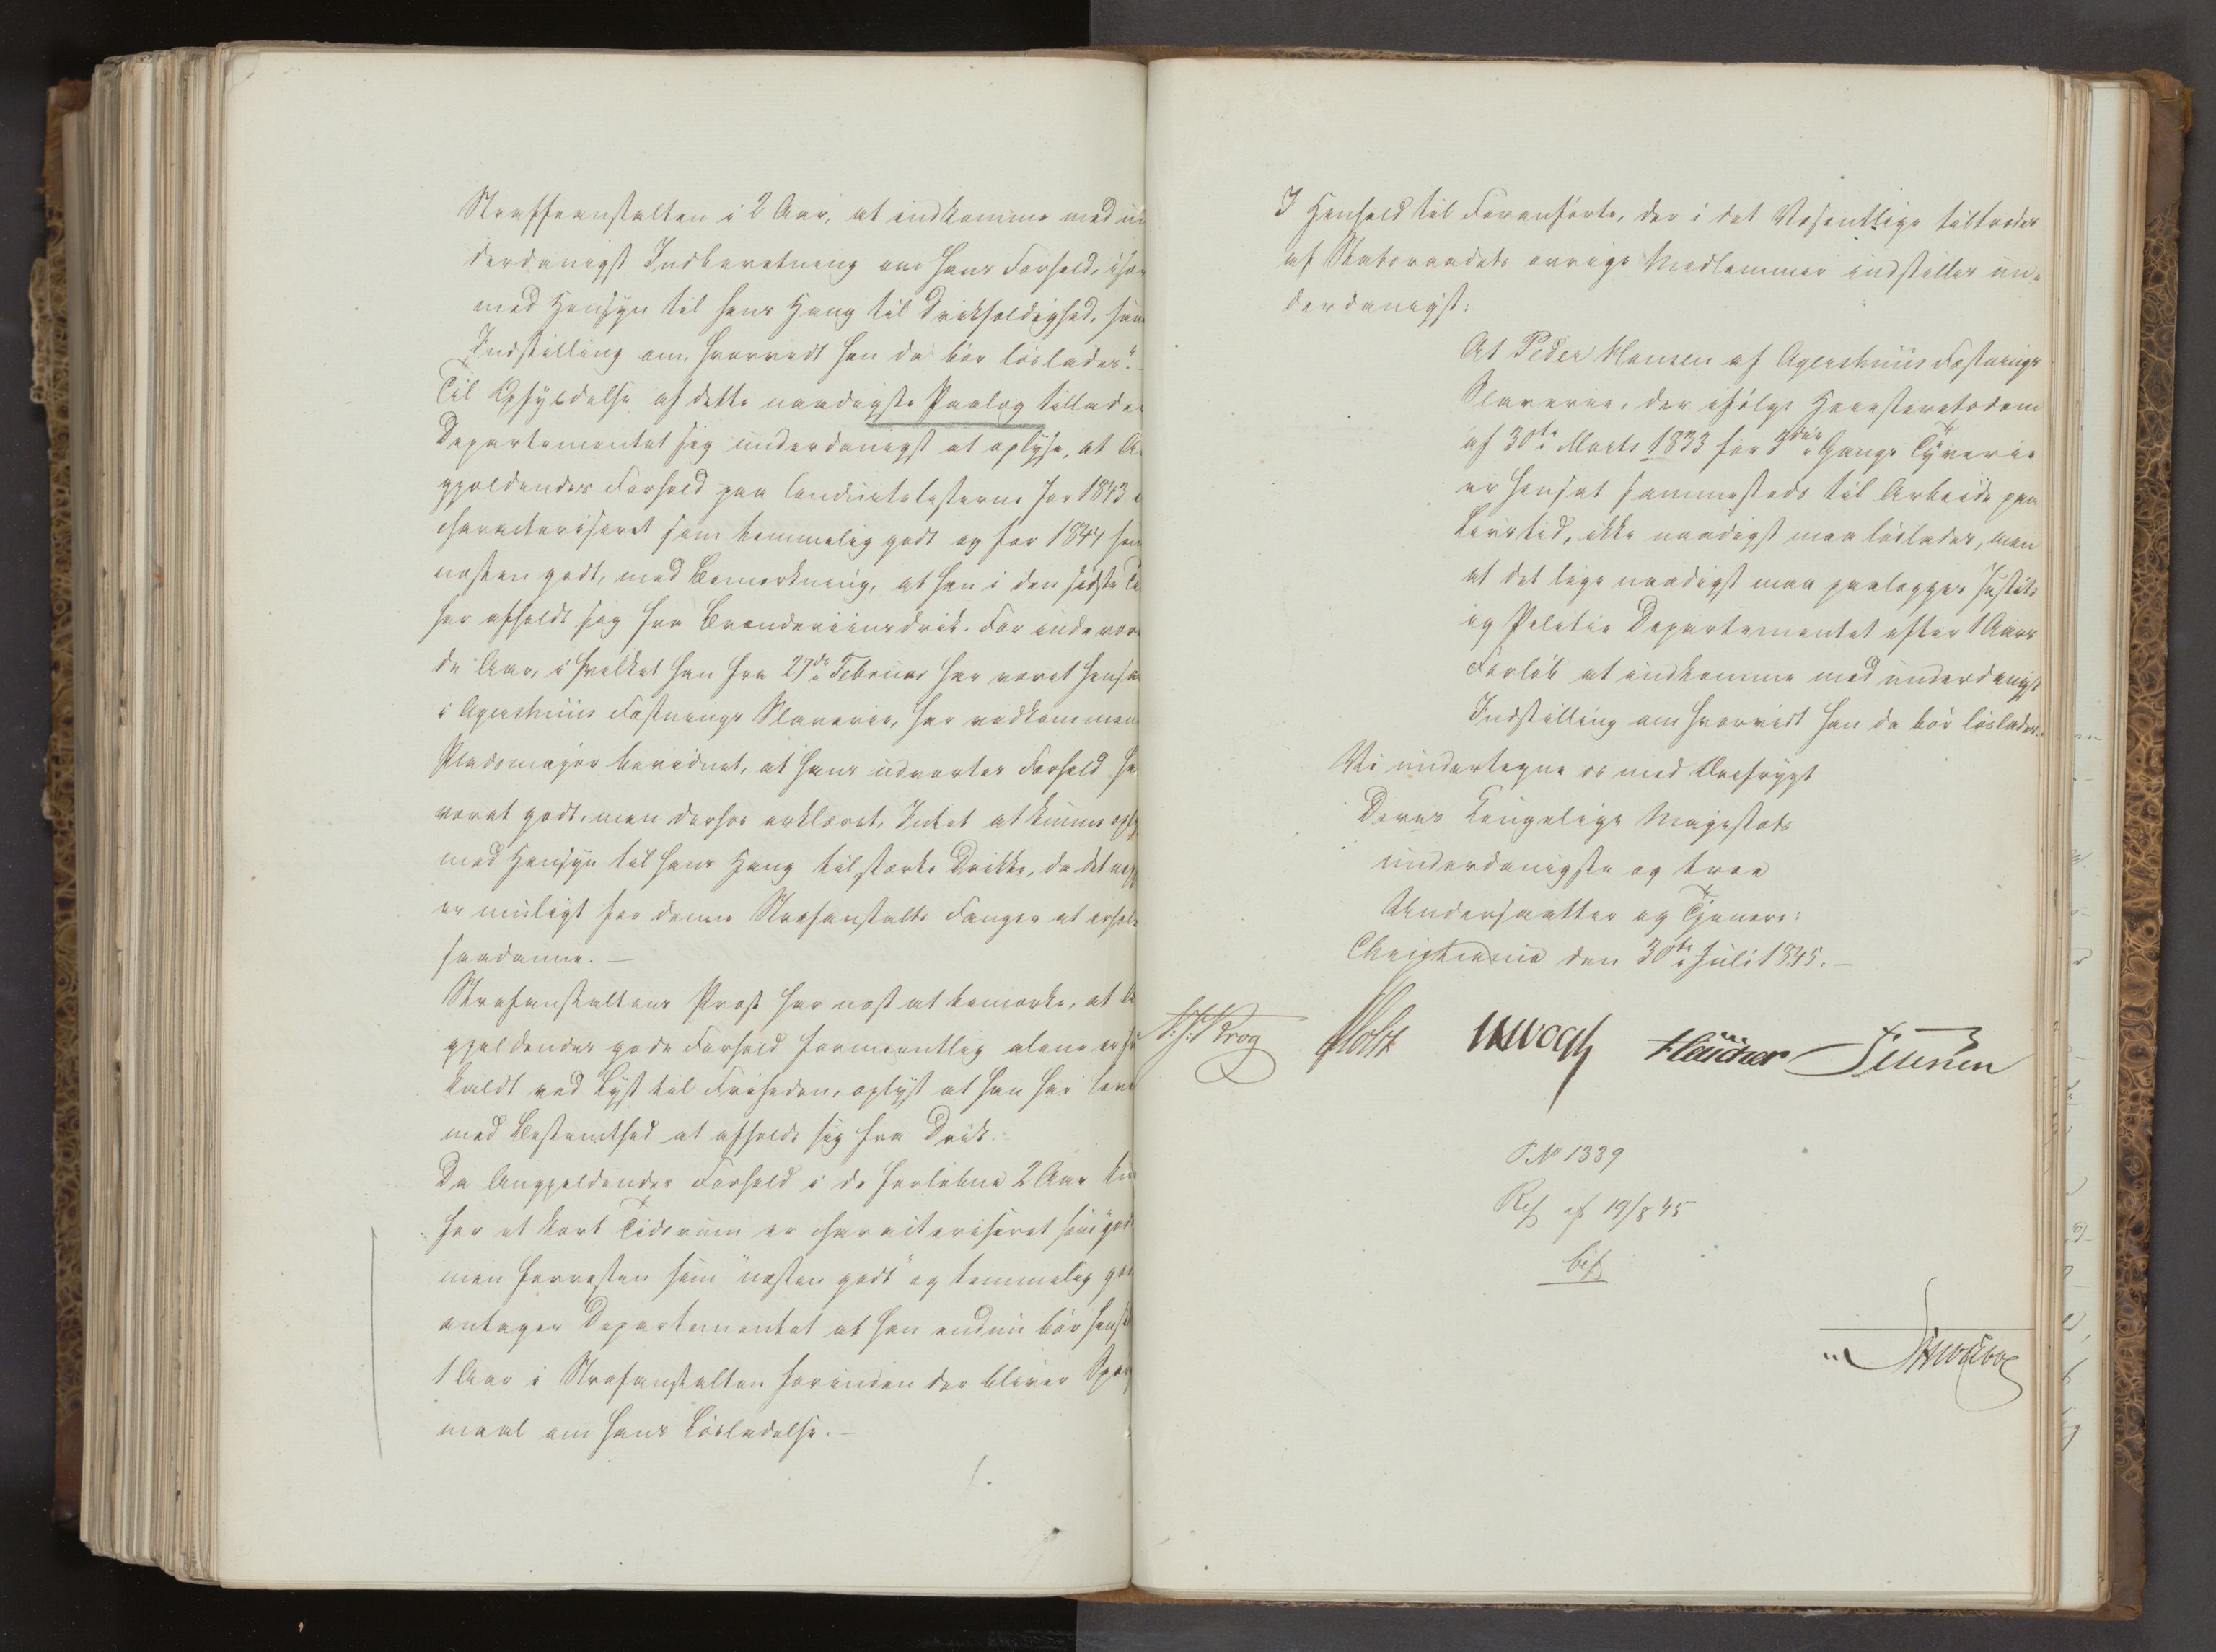 Straffeanstalten i 2 Aar, at indkomme med un
derdanigst Indberetning om hans Forhold, især
med Hensyn til hans Hang til Drikfældighed, samt
Indstilling om, hvorvidt han da bør løslades".
Til Opfyldelse af dette naadigste Paalæg tillader
Departementet sig underdanigst at oplyse, at A
gjældendes Forhold paa Conduitelisterne for 1843 e
characteriseret som temmelig godt og for 1844 som
næsten godt, med Bemærkning, at han i den sidste Ti
har afholdt sig fra Brændeviinsdrik. For indeværen
de Aar, i hvilket han fra 27de Februar har været hensat
i Agershuus Fæstnings Slaverie, har vedkommen
Pladsmajor bevidnet, at hans udvortes Forhold ha
været godt, men derhos erklæret, Intet at kunne oply
med Hensyn til hans Hang til stærke Drikke, da det
er muligt for denne Strafanstalts Fanger at erhol
saadanne. —
Strafanstaltens Præst har næst at bemærke, at A
gjældendes gode Forhold formeentlig alene er
kaldt ved Lyst til Friheden, oplyst at han har lov
med Bestemthed at afholde sig fra Drik.
Da Anggjældendes Forhold i de forløbne 2 Aar kun
for et kort Tidsrum er characteriseret som "god
men forresten som "næsten godt" og temmelig god
antager Departementet at han endnu bør hensid
1 Aar i Strafanstalten forinden der bliver Spør
maal om hans Løsladelse. —
I Henhold til Foranførte, der i det Væsentlige tiltrædes
af Statsraadets øvrige Medlemmer indstilles un-
derdanigst:
At Peder Hansen af Agershuus Fæstnings
Slaverie, der ifølge Høiesteretsdom
af 30te Marts 1833 for 3die Gangs Tyverie
er hensat sammesteds til Arbeide paa
Livstid, ikke naadigst maa løslades, men
at det lige naadigst maa paalægges Justits
og Politie Departementet efter 1 Aars
Forløb at indkomme med underdanigst
Indstilling om hvorvidt han da bør løslades.
Vi undertegne os med Ærefrygt
Deres Kongelige Majestæts
underdanigste og troe
Undersaatter og Tjenere:
Christiania den 30te Juli 1845. —
Krog Holst Vogt
P.N 1339
Res af 19/8 45
bif